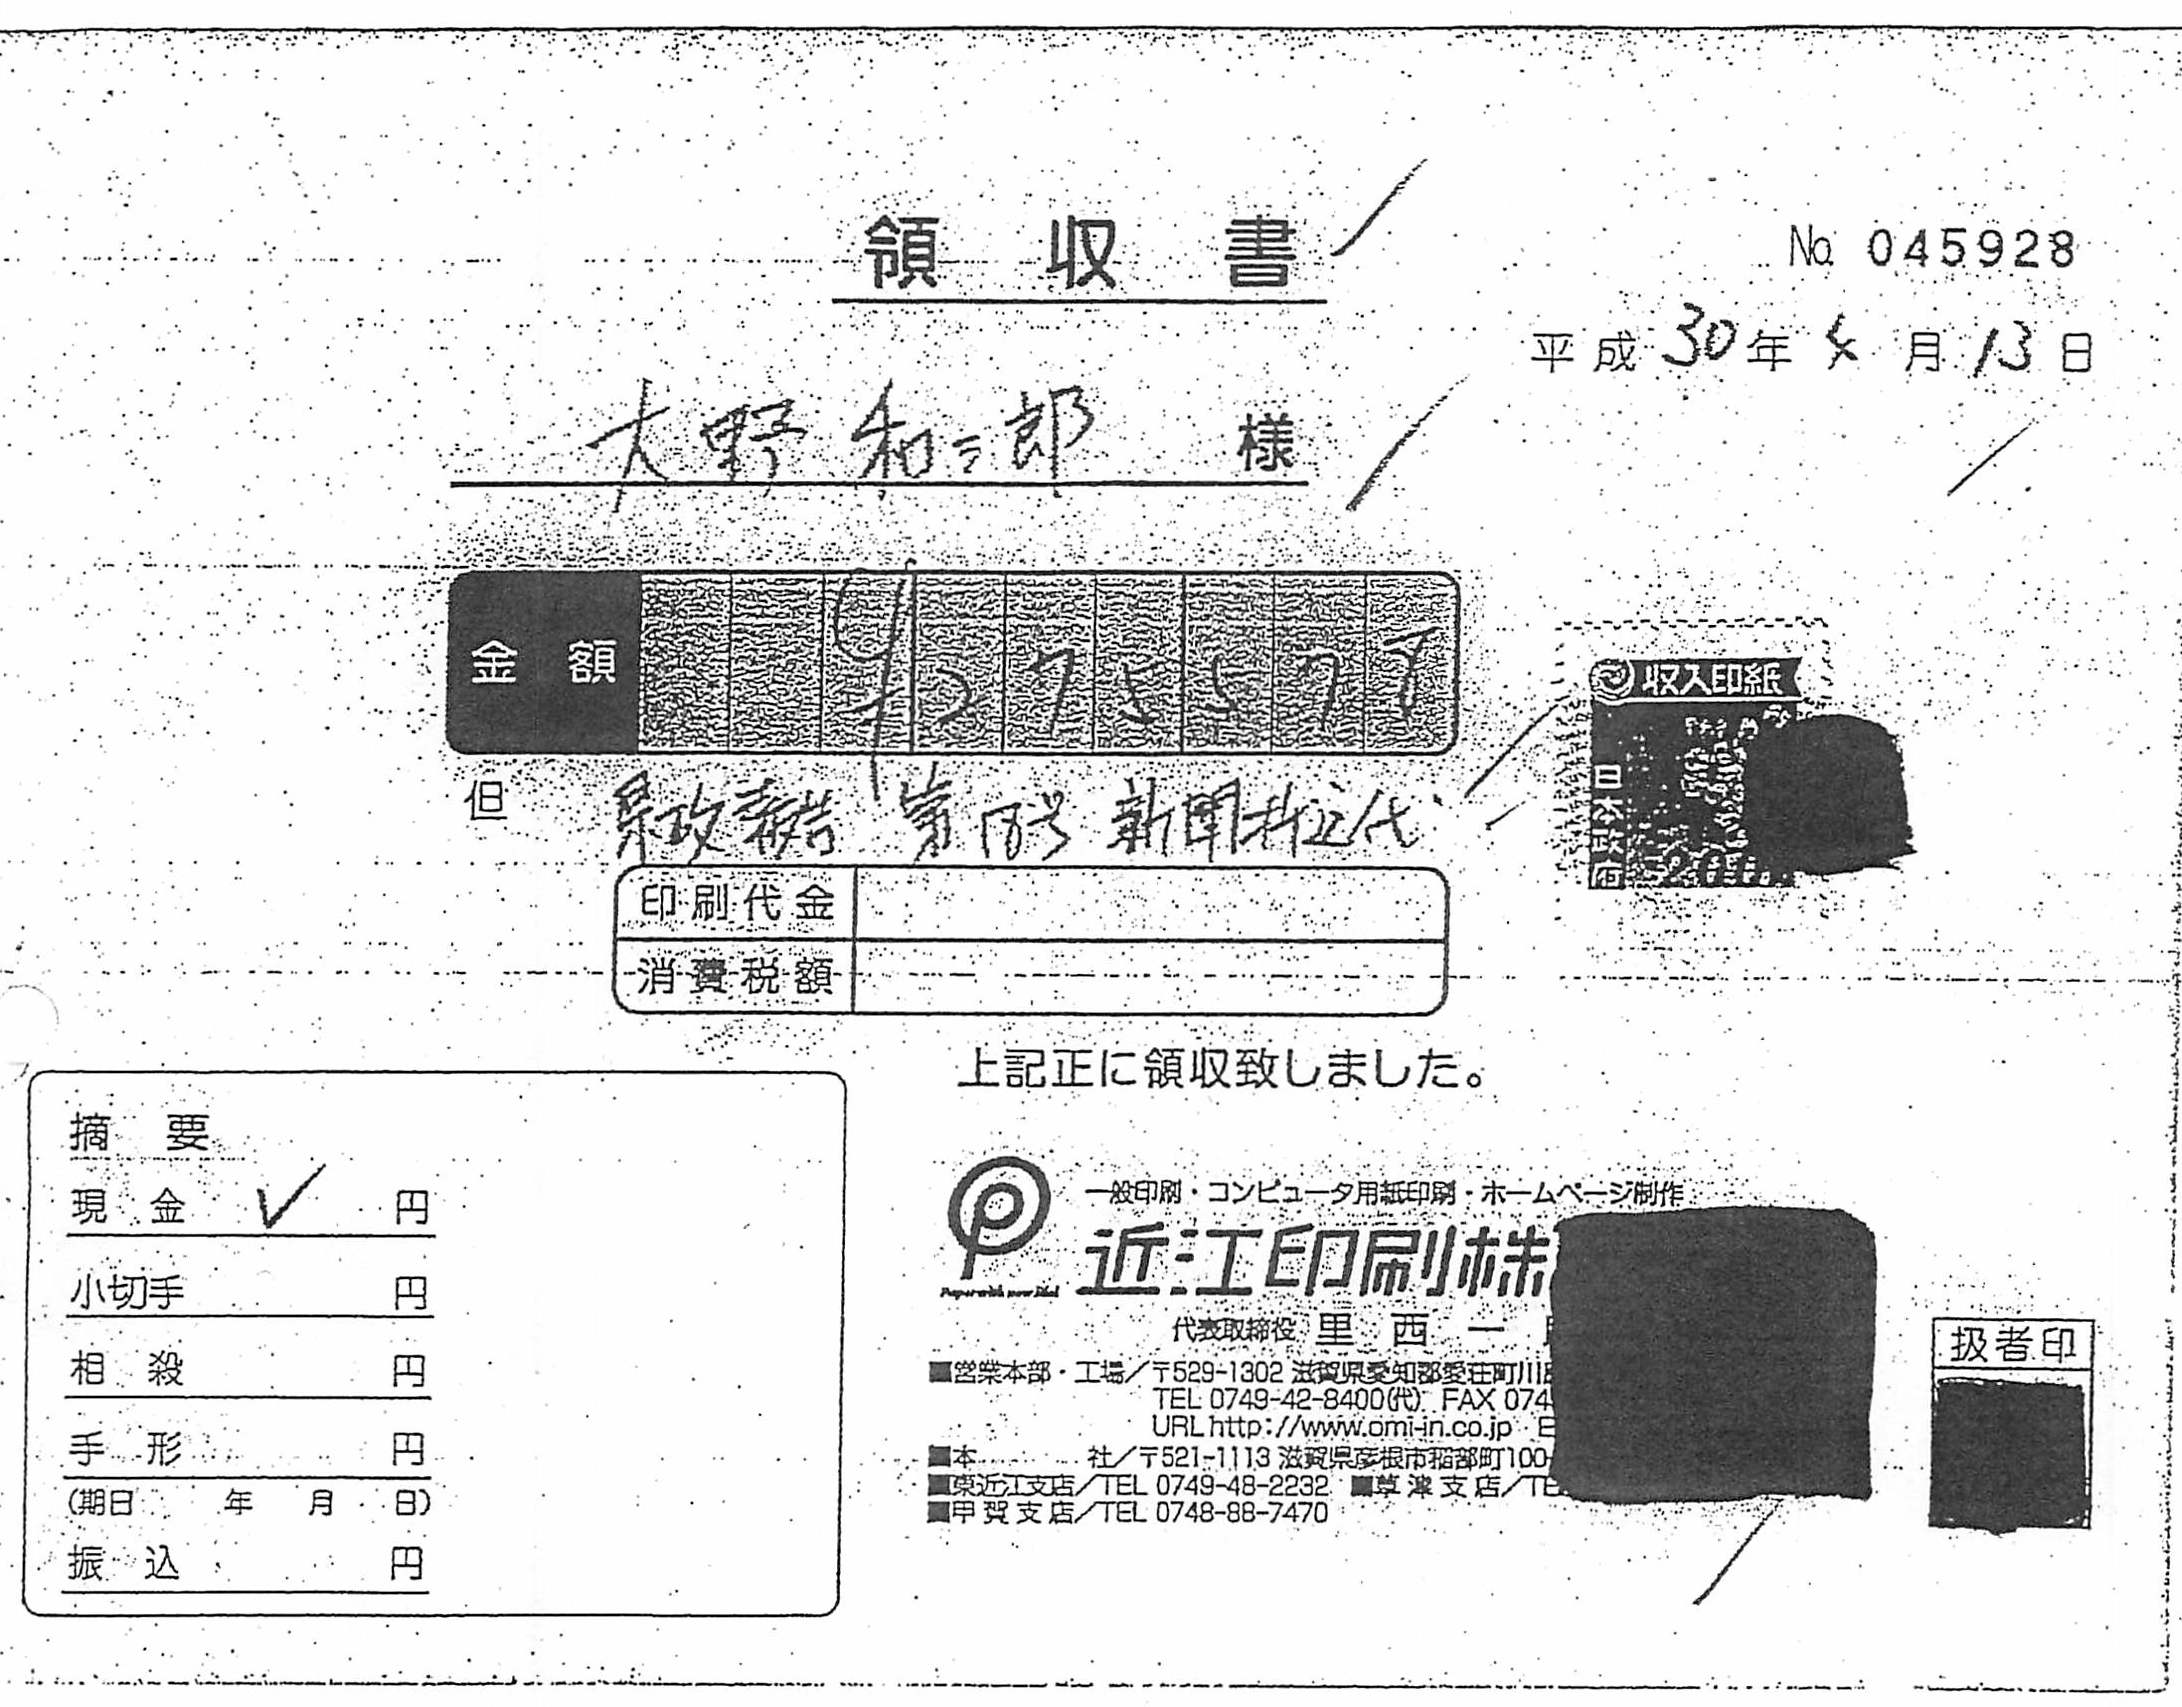 領収書
No. 045928
平成 30 年 4 月 13 日
大野和三郎 様
金額 ¥275577
但 県政報告 第18号 新聞折込代
収入印紙
日本政府
200
印刷代金
消費税額
上記正に領収致しました。
摘要
現金 ✓ 円
小切手 円
相殺 円
手形 円
(期日 年 月 日)
振込 円
一般印刷・コンピュータ用紙印刷・ホームページ制作
近江印刷株
代表取締役 里西一
■営業本部・工場/〒529-1302 滋賀県愛知郡愛荘町川
TEL 0749-42-8400(代) FAX 074
URL http://www.omi-in.co.jp E
■本社/〒521-1113 滋賀県彦根市稲部町100-
■東近江支店/TEL 0749-48-2232 ■草津支店/TE
■甲賀支店/TEL 0748-88-7470
扱者印